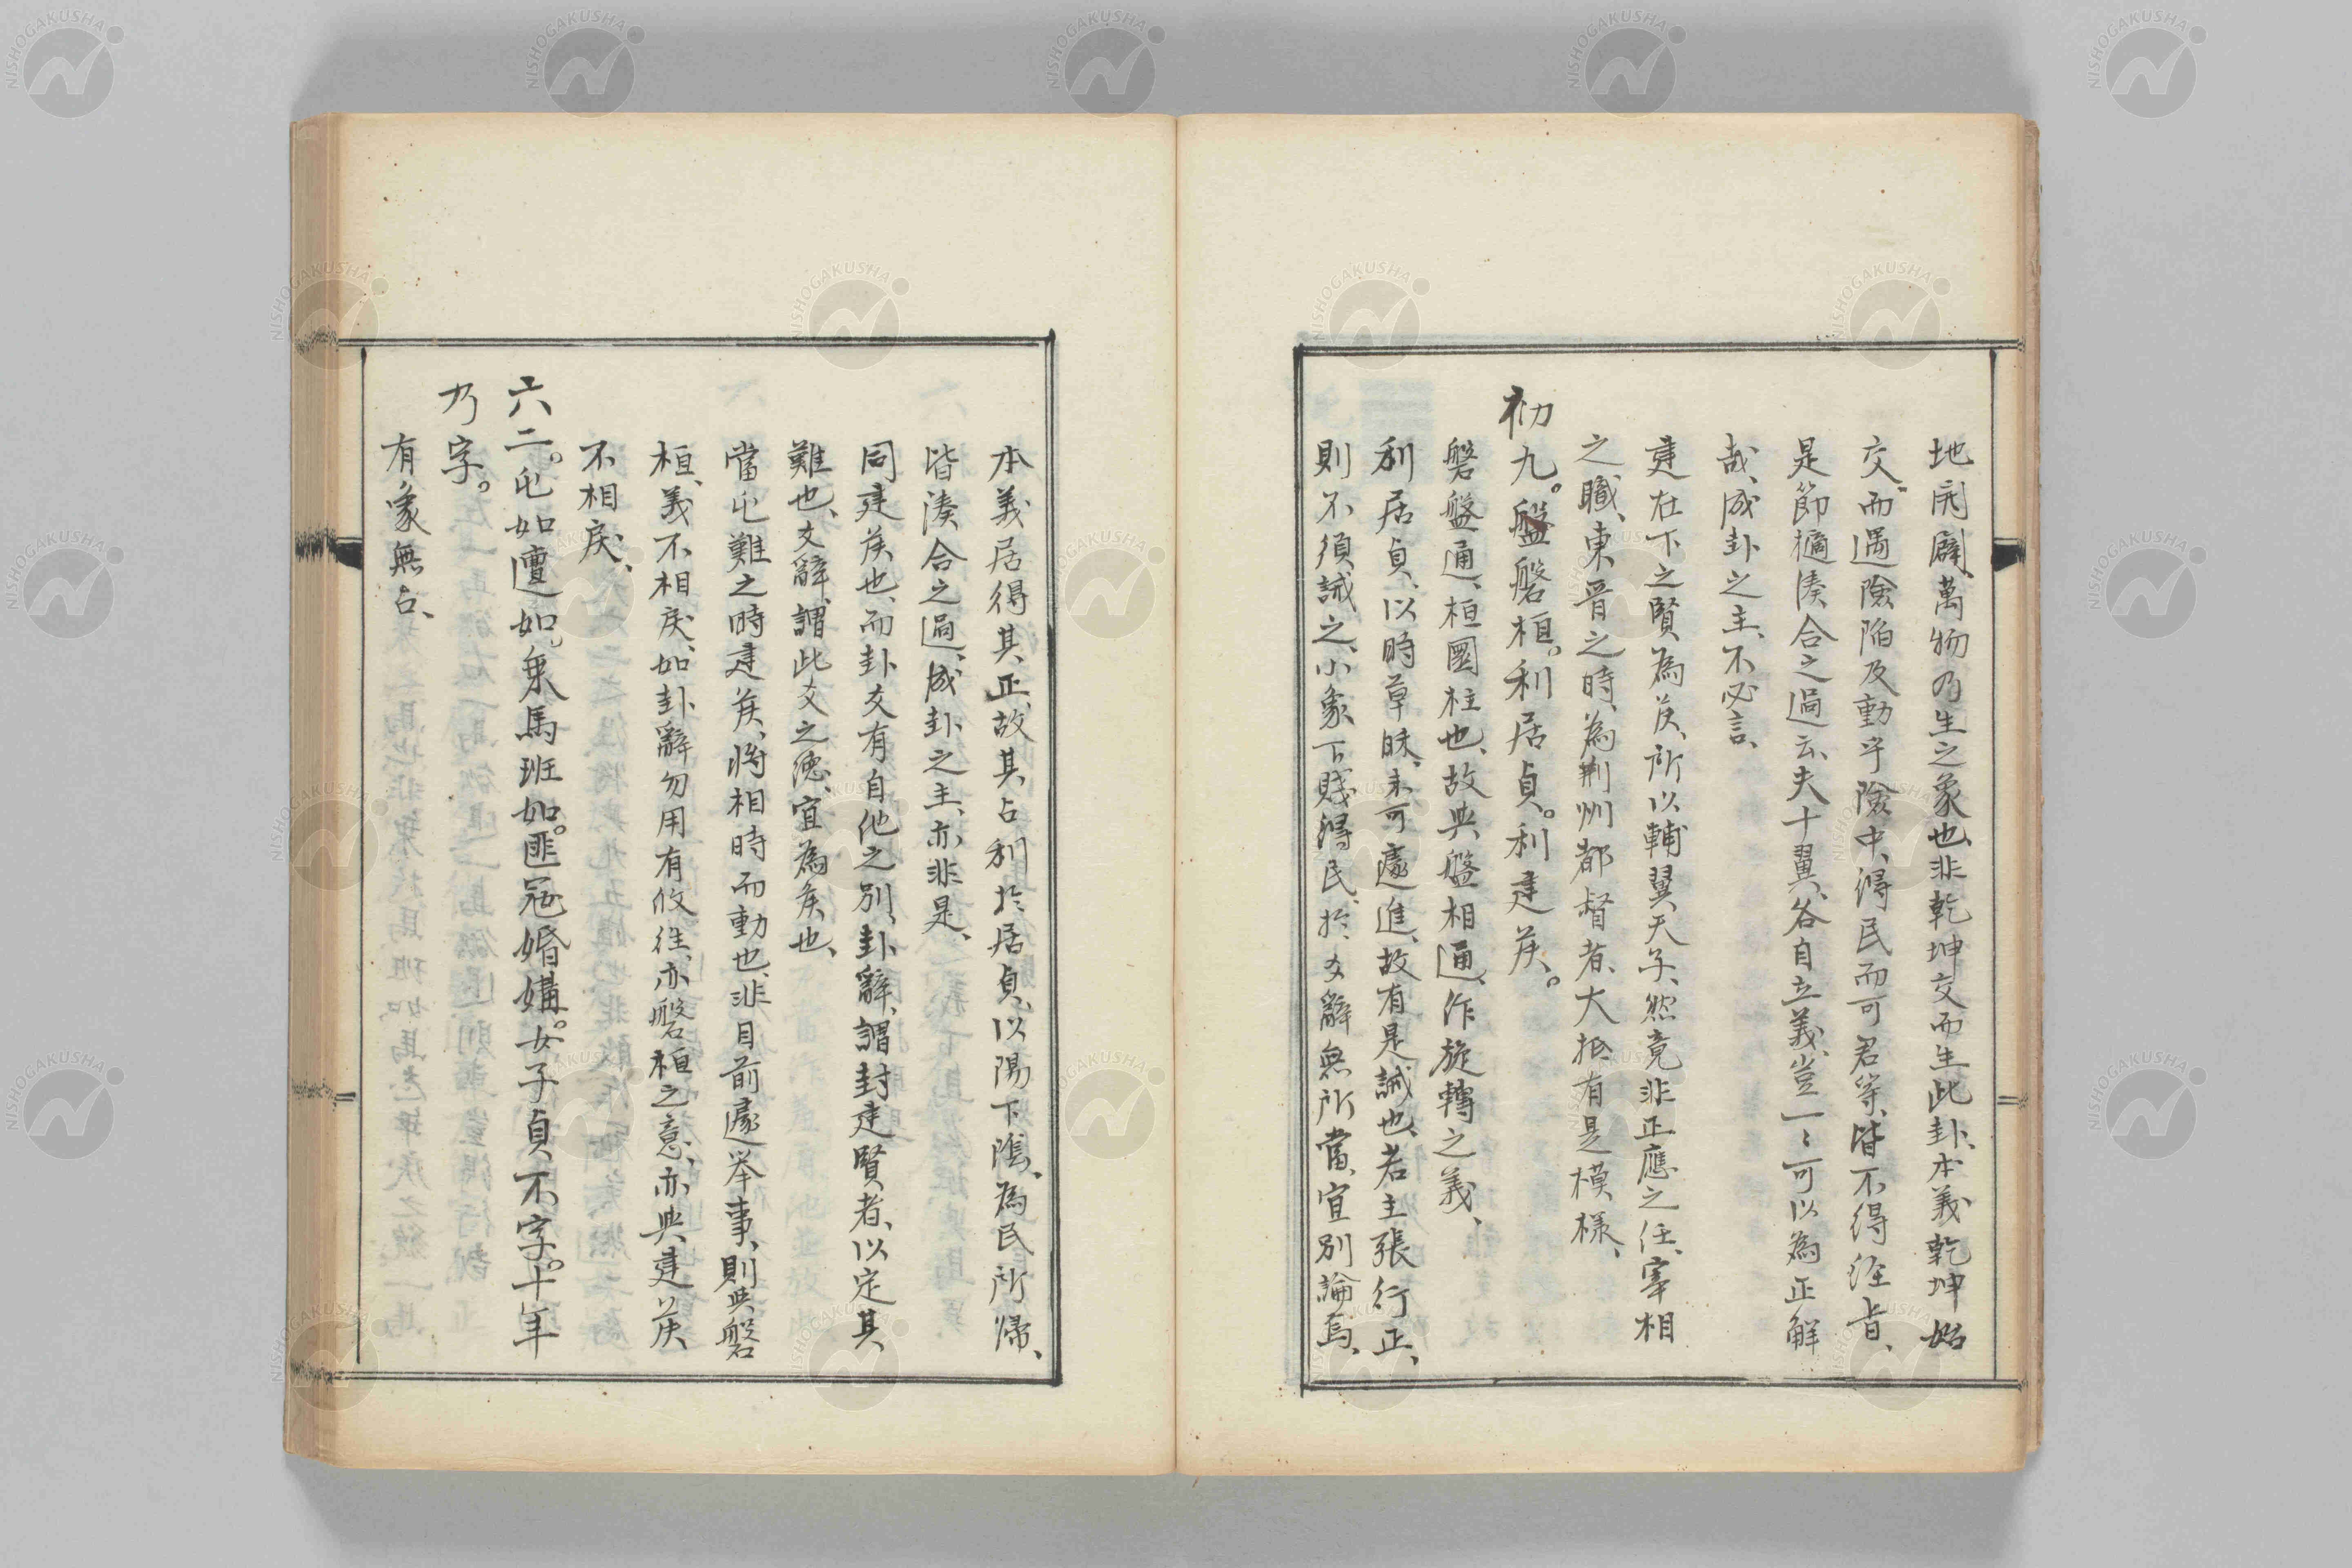 地開闢、萬物乃生之象也、非乾坤交而生此卦、本義乾坤始
交、而遇險陷及動乎險中、得民而可君等、皆不得經旨、
是節樀湊合之過云、夫十翼、各自立義、豈一〻可以為正解
哉、成卦之主、不必言、
建在下之賢為侯、所以輔翼天子、然竟非正應之任、宰相
之職、東晉之時、為荆州都督者、大抵有是模樣、
初九。盤磐桓。利居貞。利建侯。
磐盤通、桓國柱也、故與盤相通、作旋轉之義、
利居貞、以時草昧、未可遽進、故有是誡也、若主張行正、
則不須誡之、小象下賤得民、於爻辭無所當、宜別論焉、
本義居得其正、故其占利於居貞、以陽下陰、為民所帰、
皆湊合之過、成卦之主、亦非是、
同建侯也、而卦爻有自他之別、卦辭、謂封建賢者、以定其
難也、爻辭、謂此爻之德、宜為侯也、
當屯難之時建侯、將相時而動也、非目前遽举事、則與磐
桓、義不相戾、如卦辭勿用有攸往、亦磐桓之意、亦與建侯
不相戾、
六二。屯如邅如。乗馬班如。匪冦婚媾。女子貞、不字。十年
乃字。
有象無占、
NISHOGAKUSHA